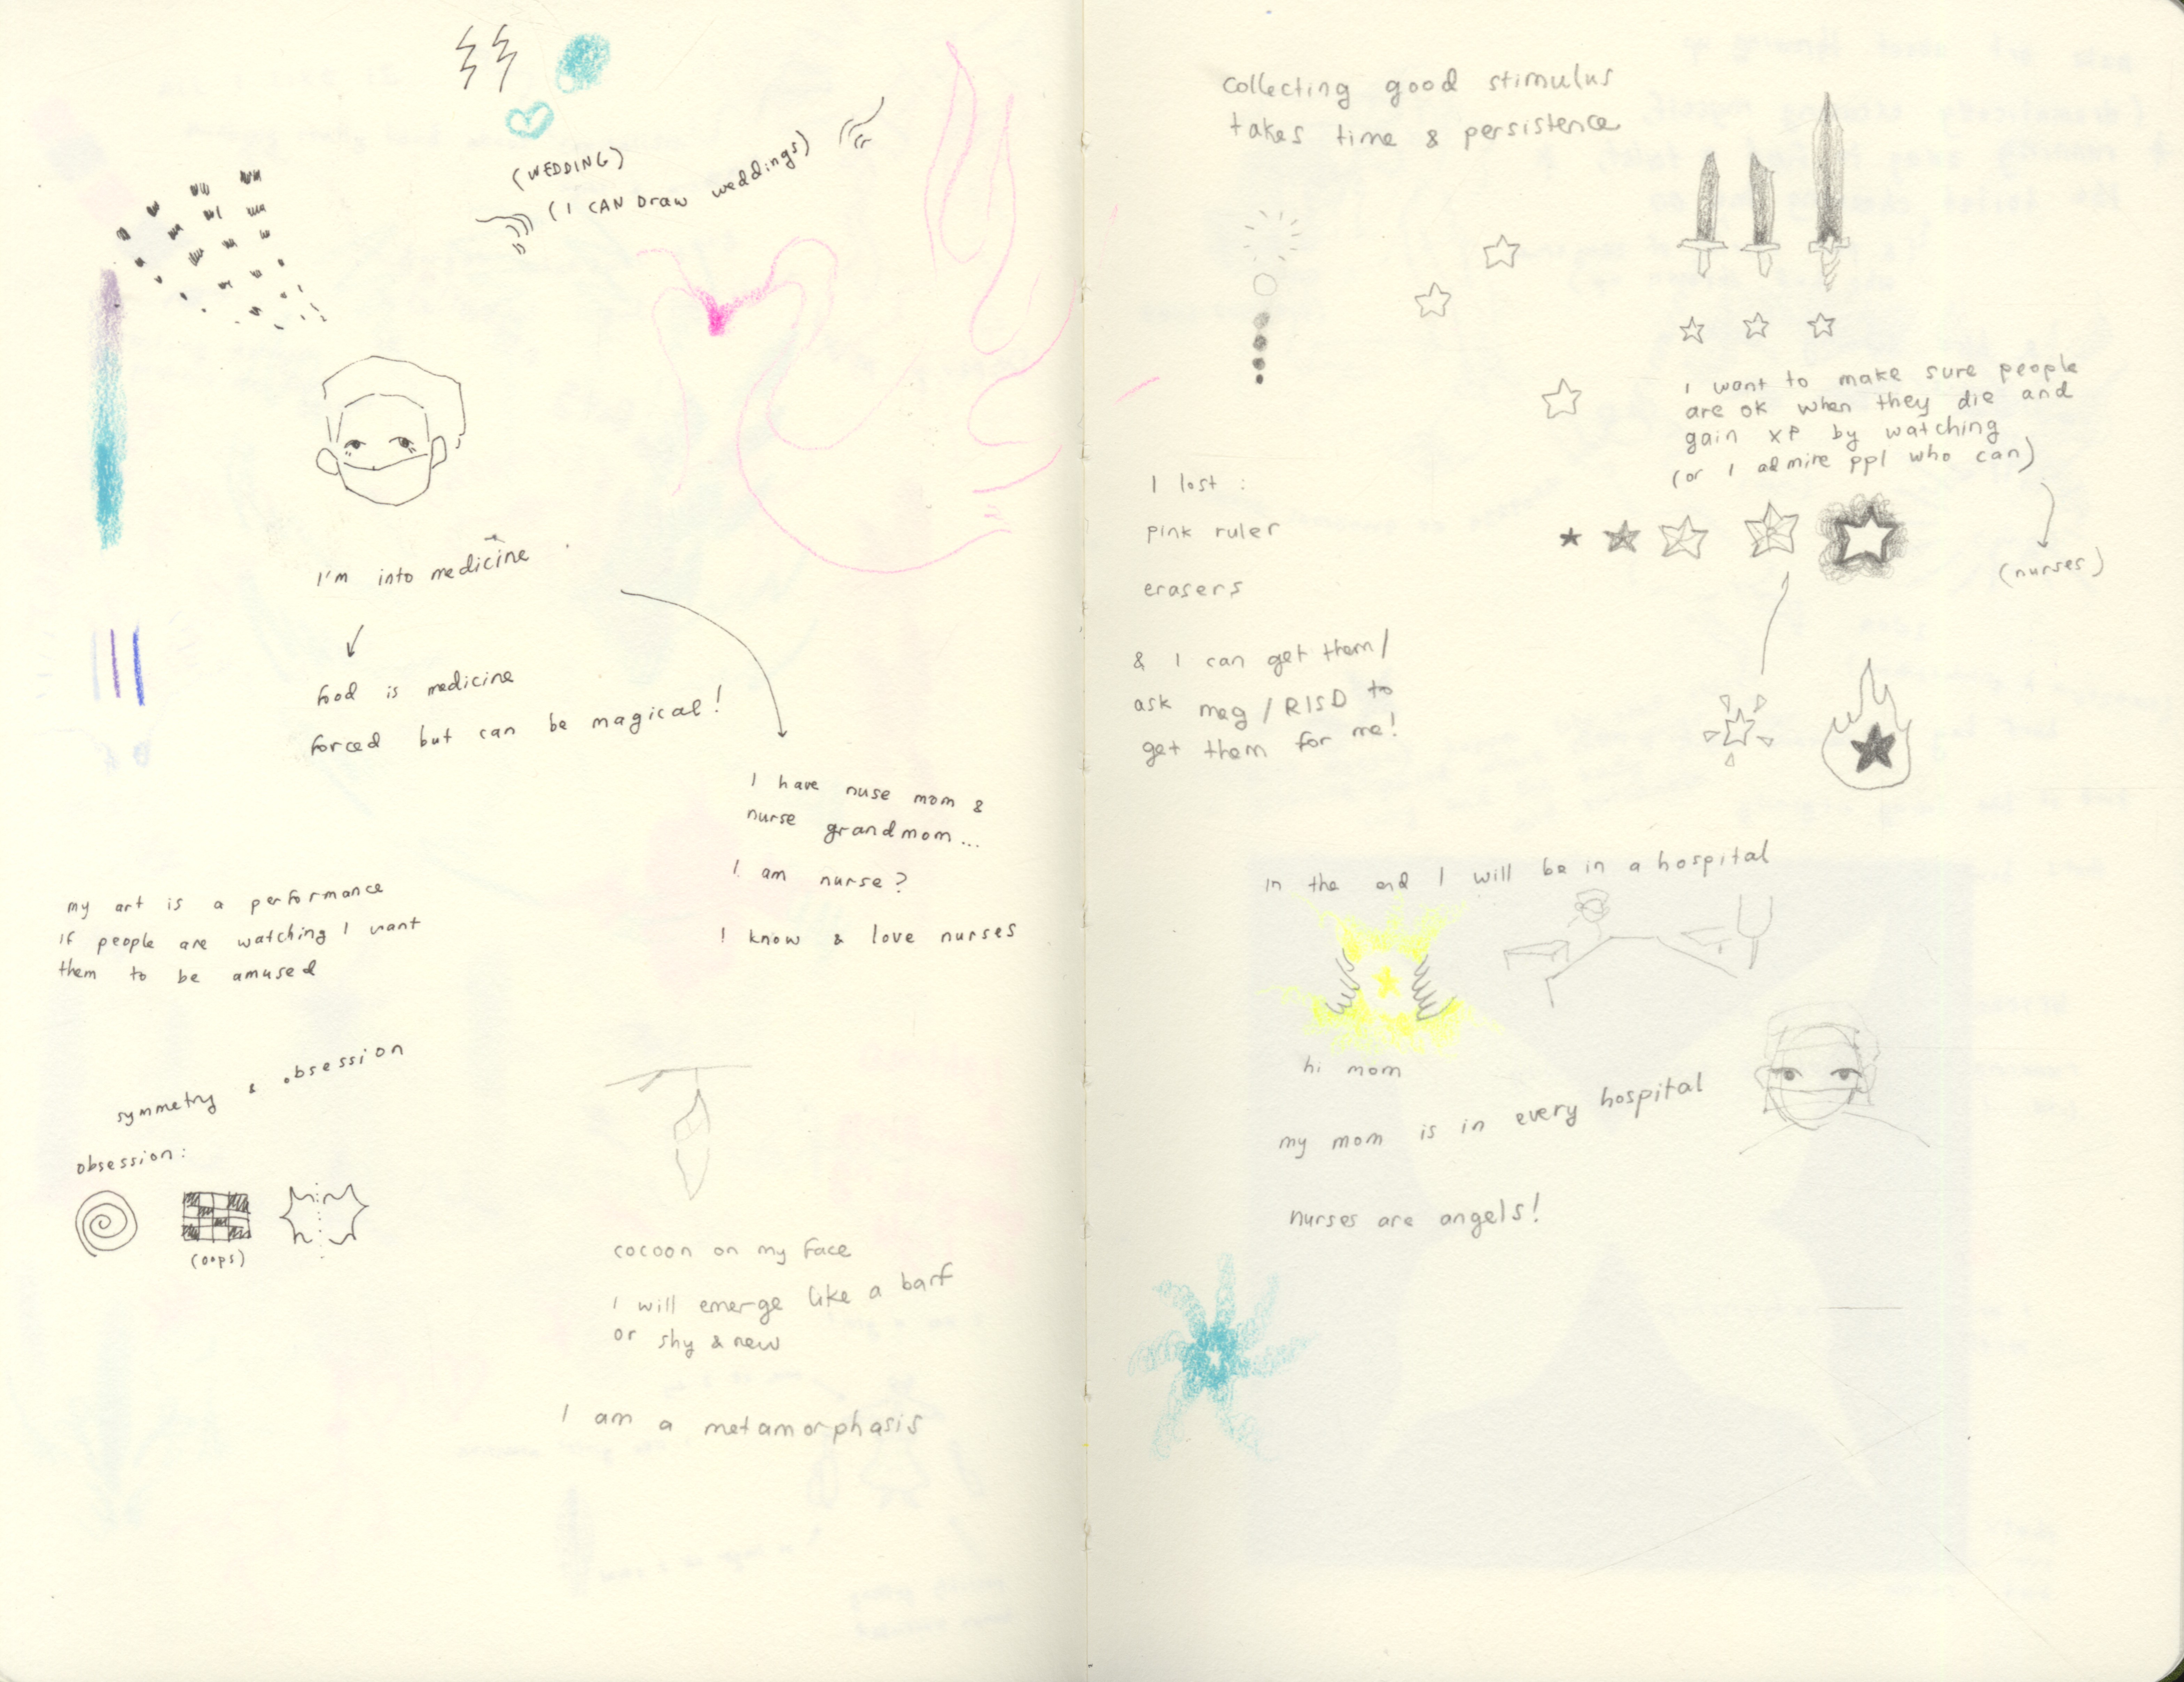 (WEDDING)
(I CAN Draw weddings)
I'm into medicine
food is medicine
forced but can be magical!
I have nuse mom &
nurse grandmom...
I am nurse?
I know & love nurses
my art is a performance
if people are watching I want
them to be amused
symmetry & obsession
obsession:
(oops)
cocoon on my face
I will emerge like a barf
or shy & new
I am a metamorphasis
collecting good stimulus
takes time & persistence
I want to make sure people
are ok when they die and
gain XP by watching
(or I admire ppl who can)
(nurses)
I lost :
pink ruler
erasers
& I can get them/
ask meg / RISD to
get them for me!
In the end I will be in a hospital
hi mom
my mom is in every hospital
nurses are angels!